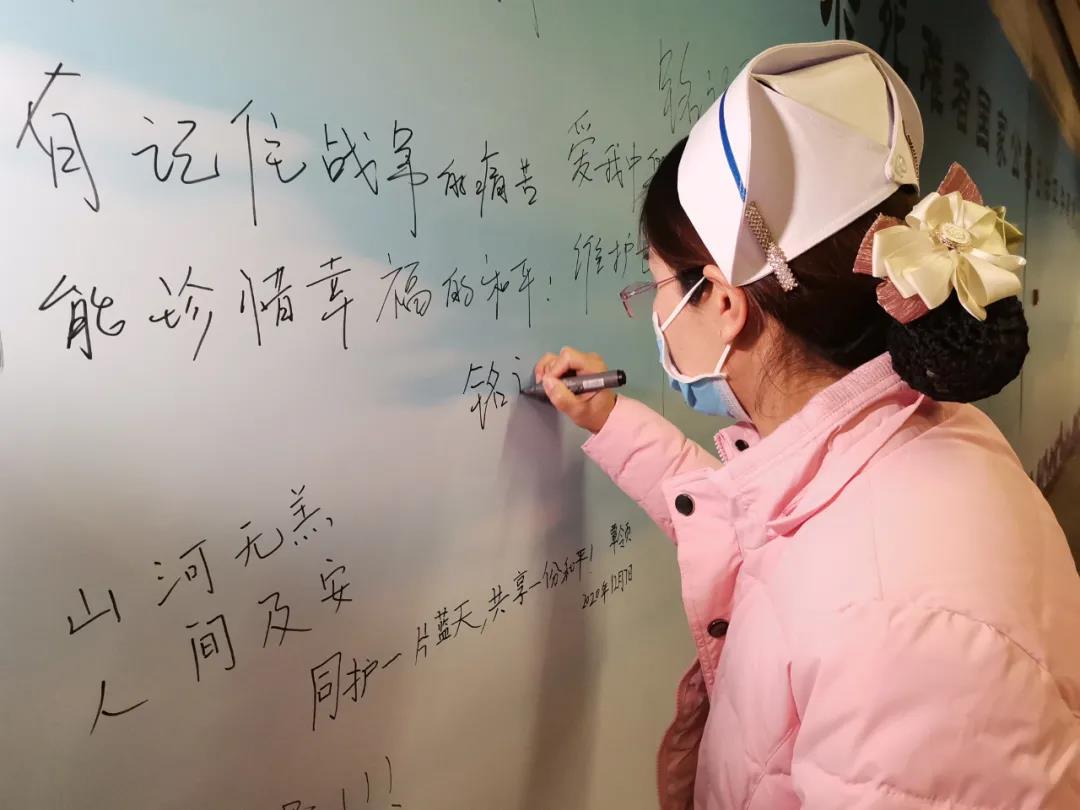 有记住战争的痛苦
能珍惜幸福的和平!
铭
爱我中
维护
铭
山河无恙
人间及安
同护一片蓝天,共享一份和平!
2020年12月7日
难者国家公